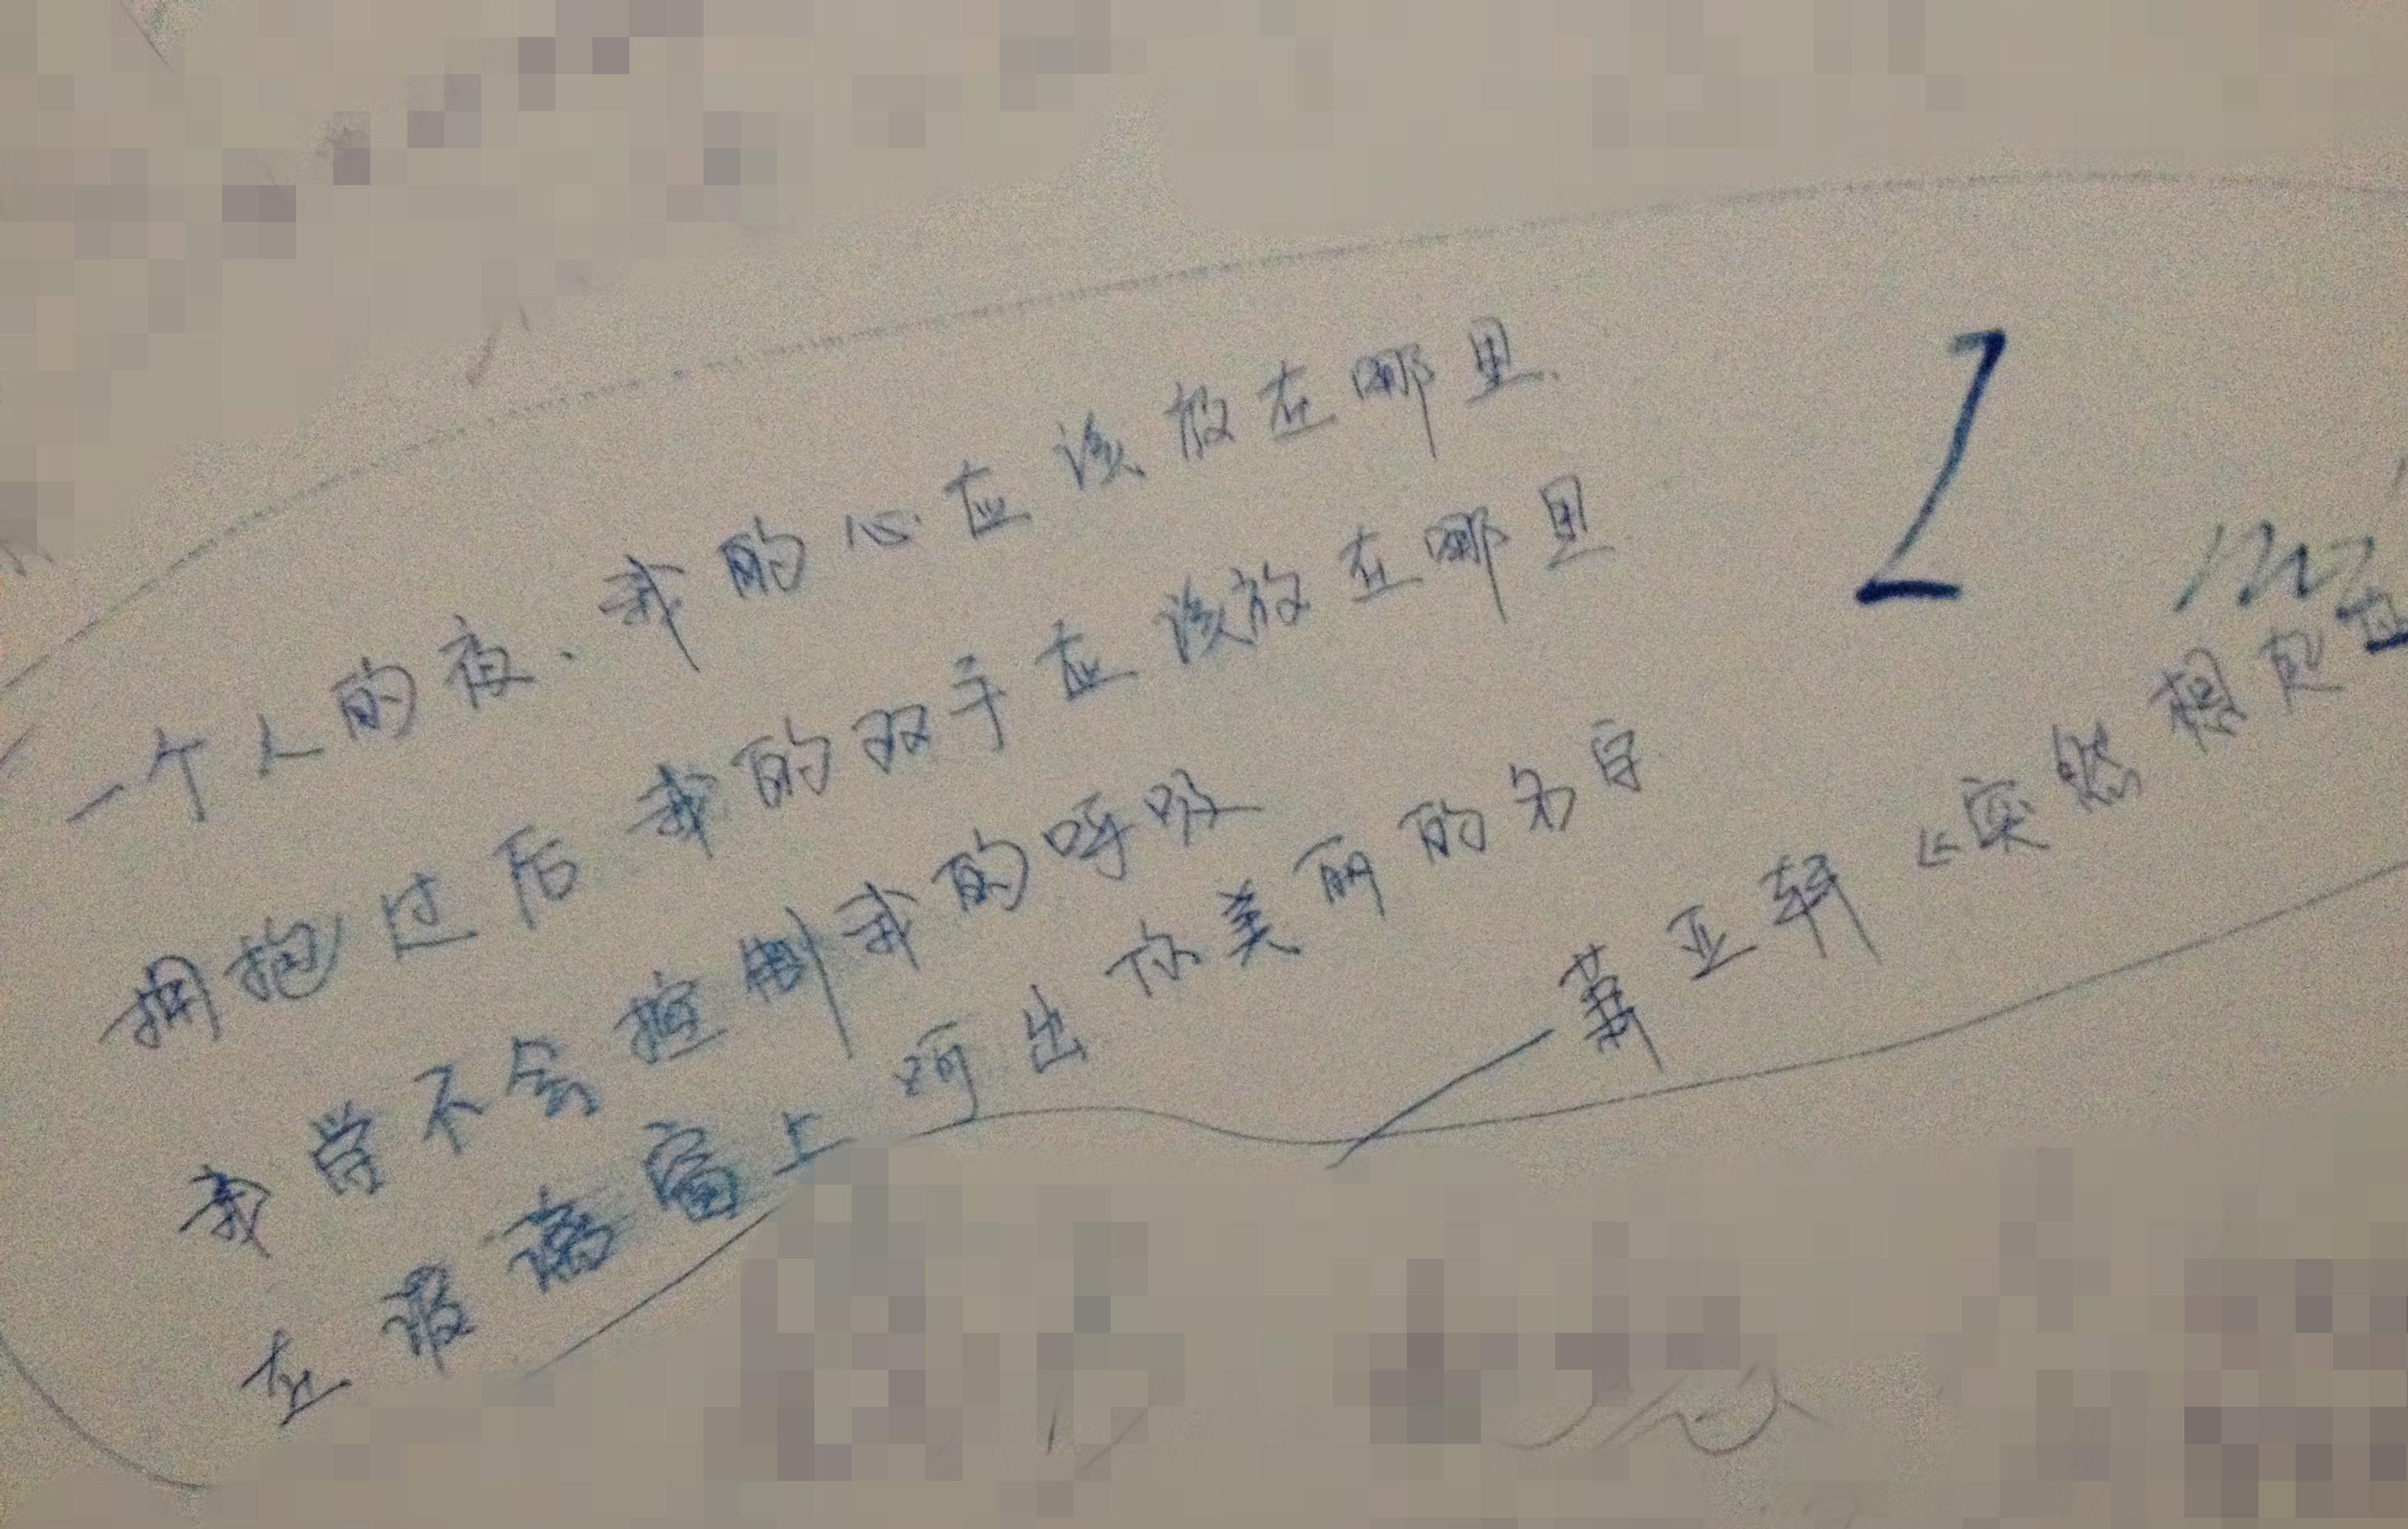 一个人的夜、我的心应该放在哪里.
拥抱过后 我的双手应该放在哪里
我学不会控制我的呼吸
在玻璃窗上呵出你美丽的名字
——萧亚轩《突然想起